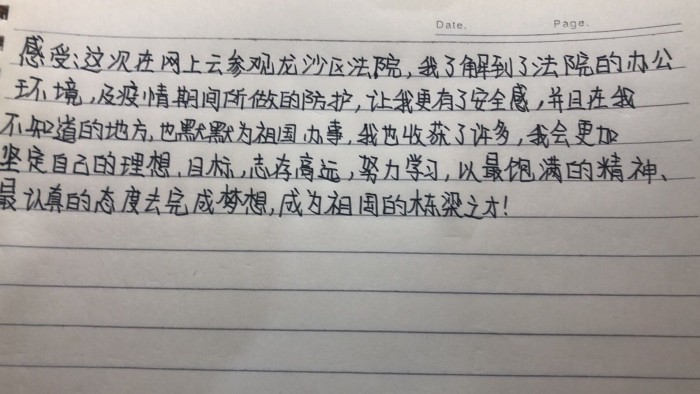 Date. Page.
感受:这次在网上云参观龙沙区法院,我了解到了法院的办公
环境,及疫情期间所做的防护,让我更有了安全感,并且在我
不知道的地方,也默默为祖国办事,我也收获了许多,我会更加
坚定自己的理想,目标,志存高远,努力学习,以最饱满的精神、
最认真的态度去完成梦想,成为祖国的栋梁之才!